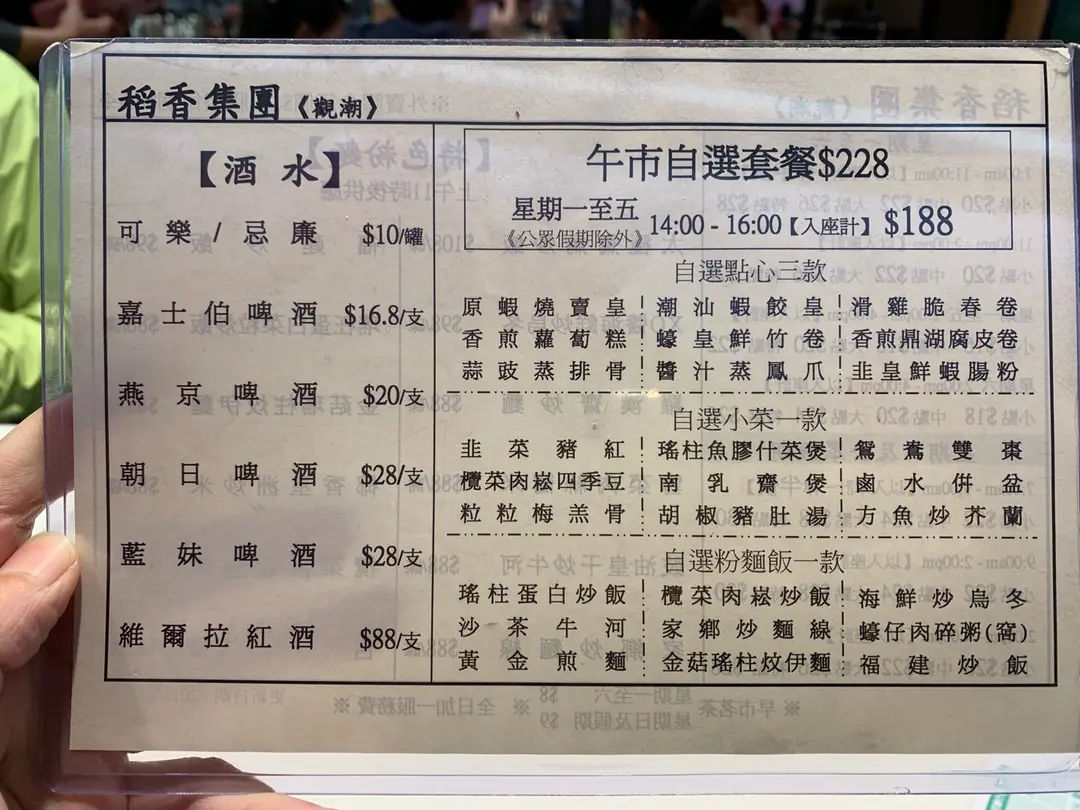 稻香集團《觀潮》
【酒水】
可樂/忌廉 $10/罐
嘉士伯啤酒 $16.8/支
燕京啤酒 $20/支
朝日啤酒 $28/支
藍妹啤酒 $28/支
維爾拉紅酒 $88/支
午市自選套餐$228
星期一至五
《公眾假期除外》
14:00 - 16:00【入座計】 $188
自選點心三款
原蝦燒賣皇 潮汕蝦餃皇 滑雞脆春卷
香煎蘿蔔糕 蠔皇鮮竹卷 香煎鼎湖腐皮卷
蒜豉蒸排骨 醬汁蒸鳳爪 韭皇鮮蝦腸粉
自選小菜一款
韭菜豬紅 瑤柱魚膠什菜煲 鴛鴦雙棗
欖菜肉崧四季豆 南乳齋煲 鹵水併盆
粒粒梅羔骨 胡椒豬肚湯 方魚炒芥蘭
自選粉麵飯一款
瑤柱蛋白炒飯 欖菜肉崧炒飯 海鮮炒烏冬
沙茶牛河 家鄉炒麵線 蠔仔肉碎粥(窩)
黃金煎麵 金菇瑤柱炆伊麵 福建炒飯